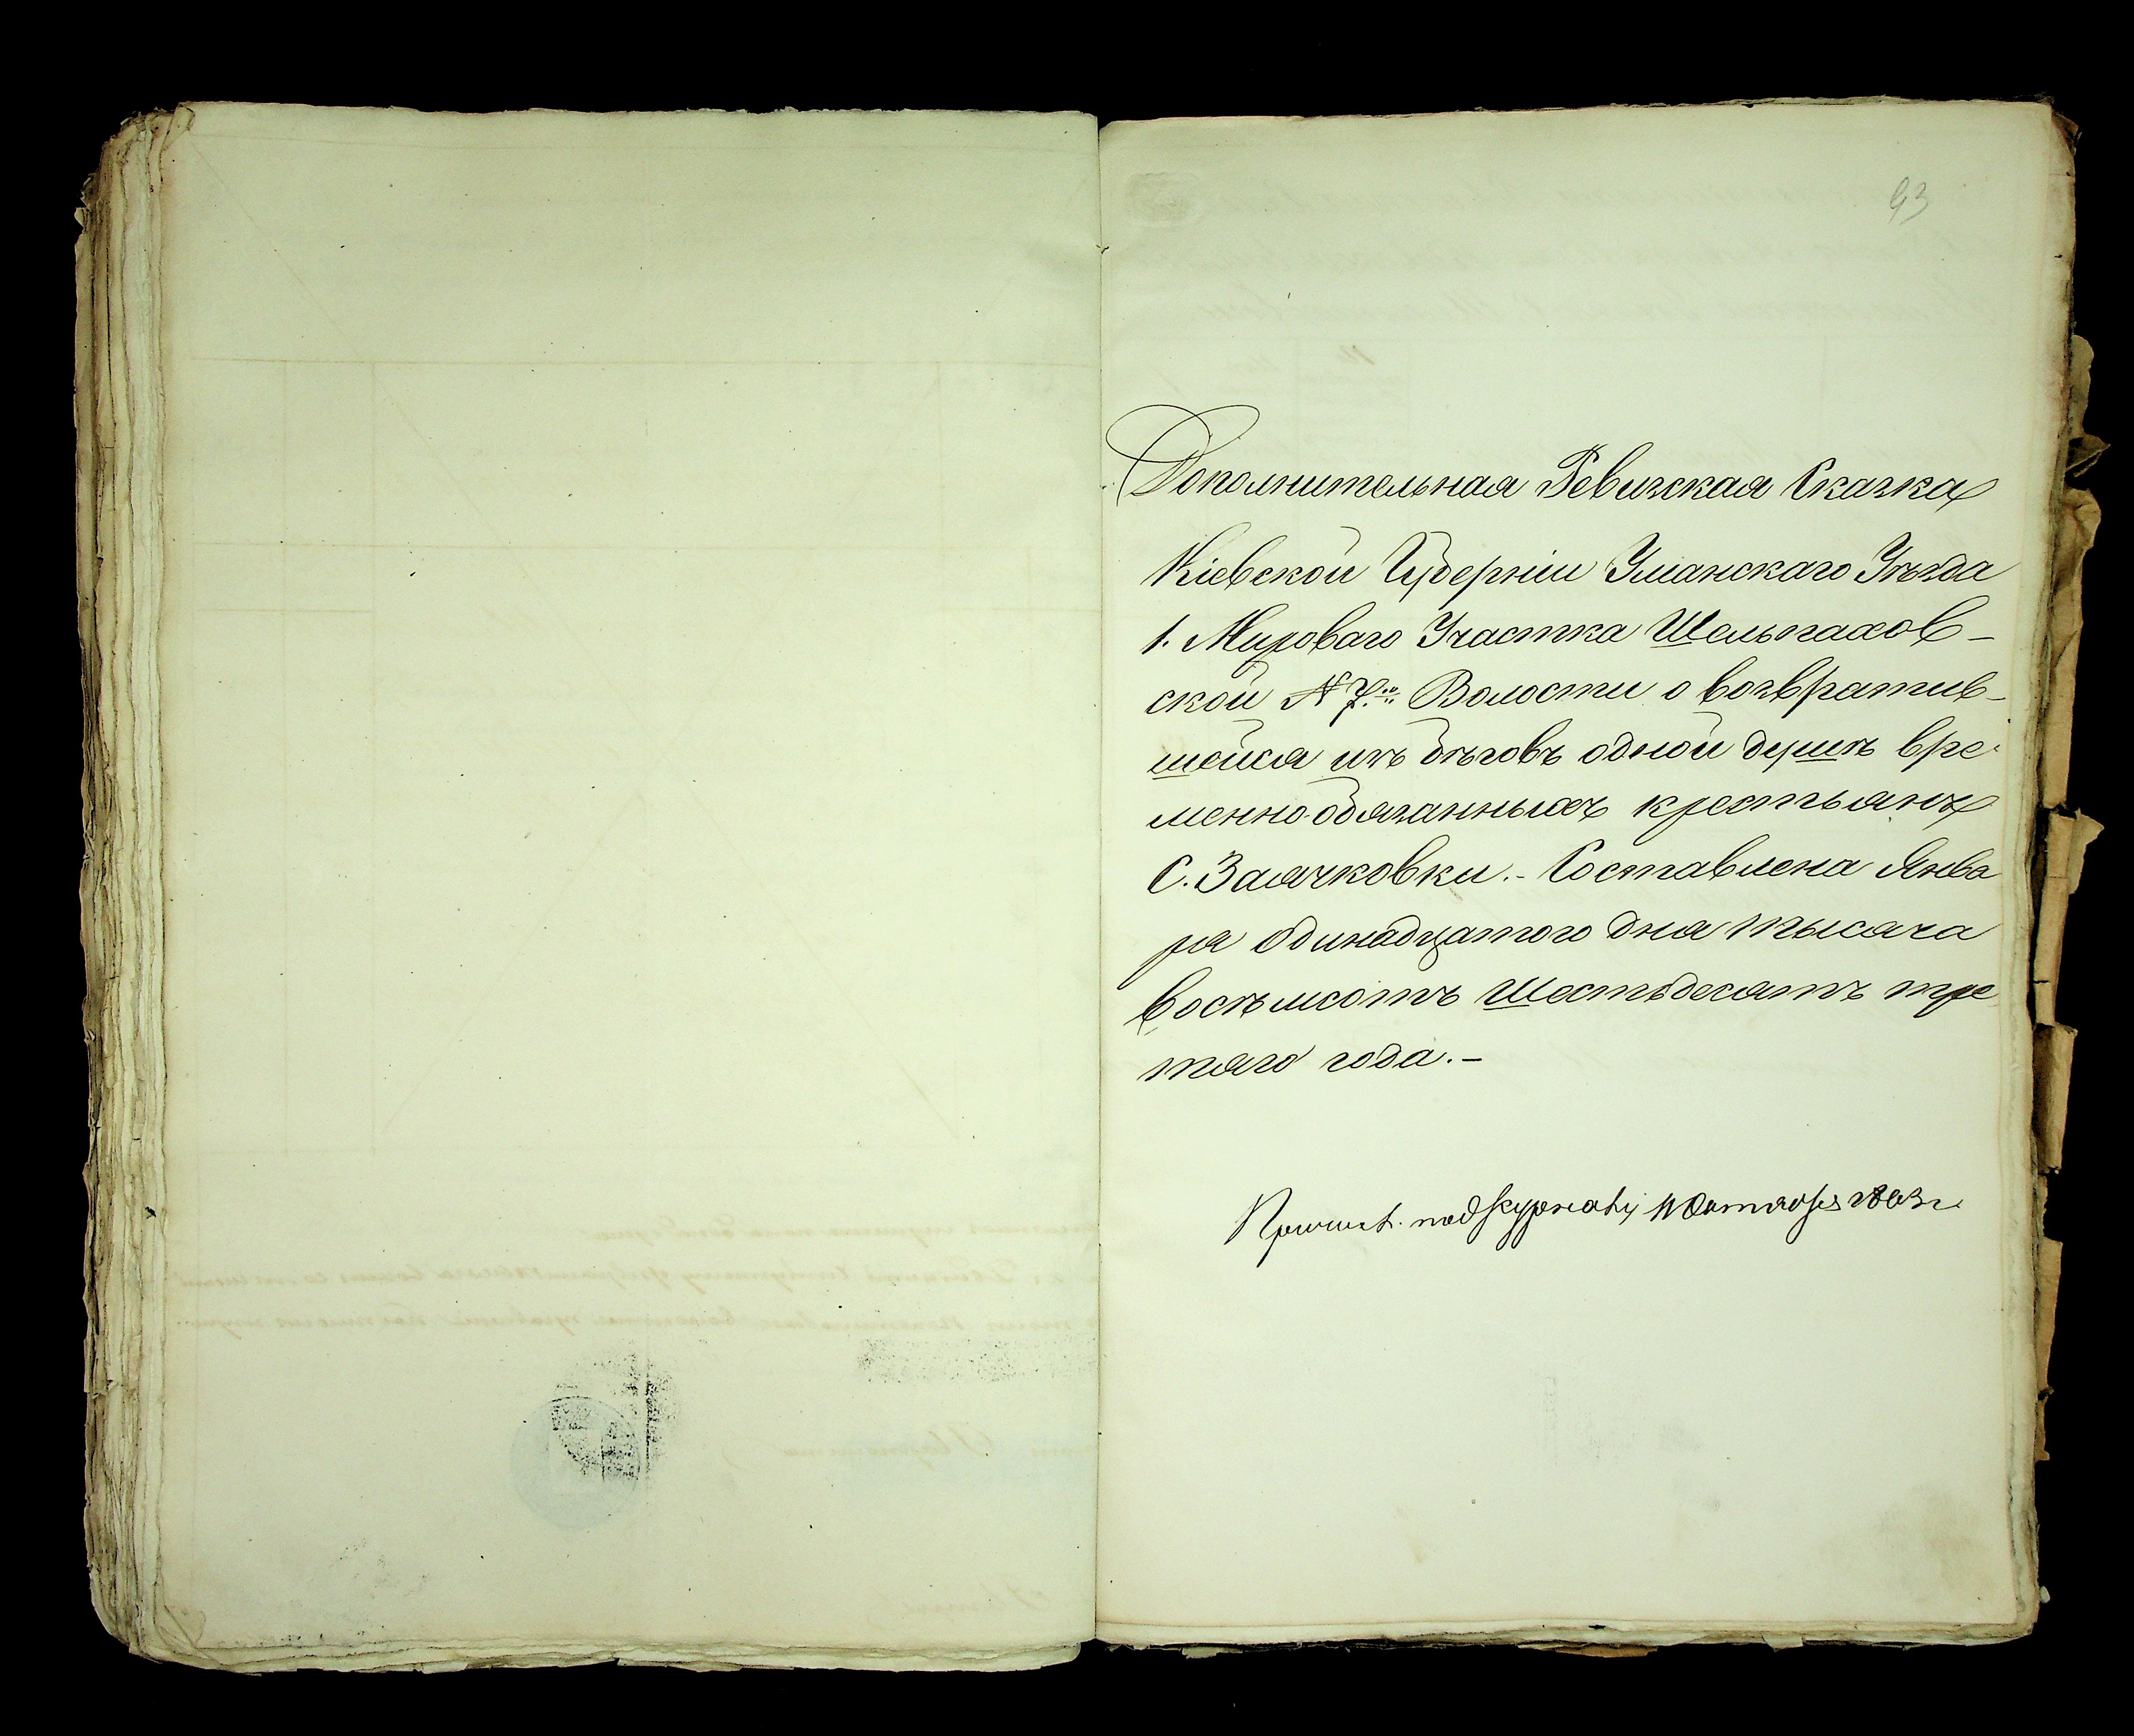 93
Дополнительная Ревизская Сказка
Кіевской Губерніи Уманскаго Уѣзда
1. Мироваго Участка Шельпахов-
ской № 7.го Волости о возвратив-
шейся изъ бѣговъ одной душѣ вре-
менно-обязанныхъ крестьянъ
С. Заячковки.- Составлена Янва
ря одинадцатого дня тысяча
восѣмсотъ Шестьдесятъ тре
тяго года.-